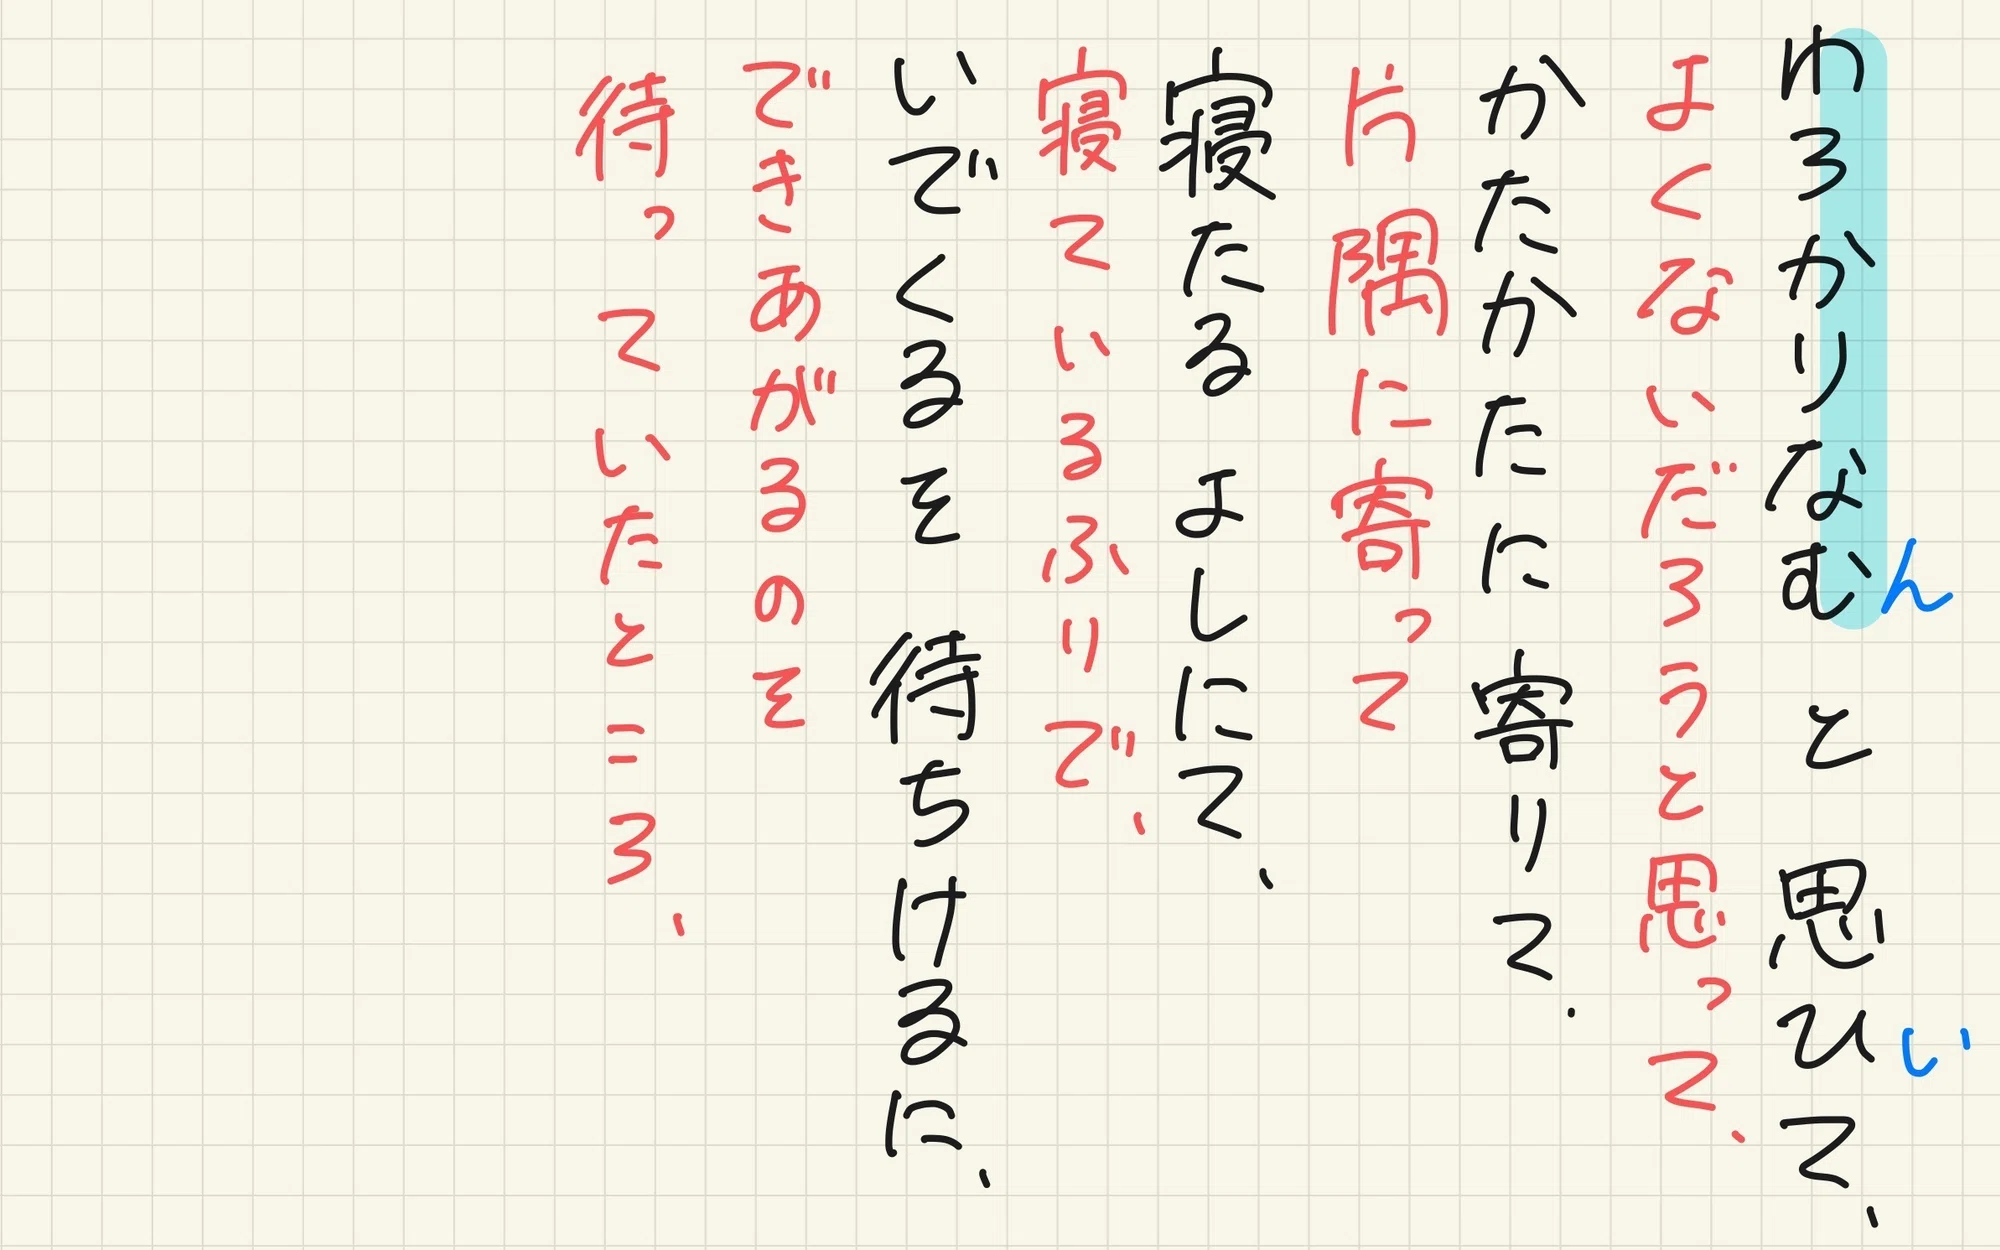 わろかりなむ と 思ひて、
ん い
よくないだろうと思って、
かたかたに 寄りて、
片隅に寄って
寝たる よしにて、
寝ているふりで、
いでくるを 待ちけるに、
できあがるのを
待っていたところ、